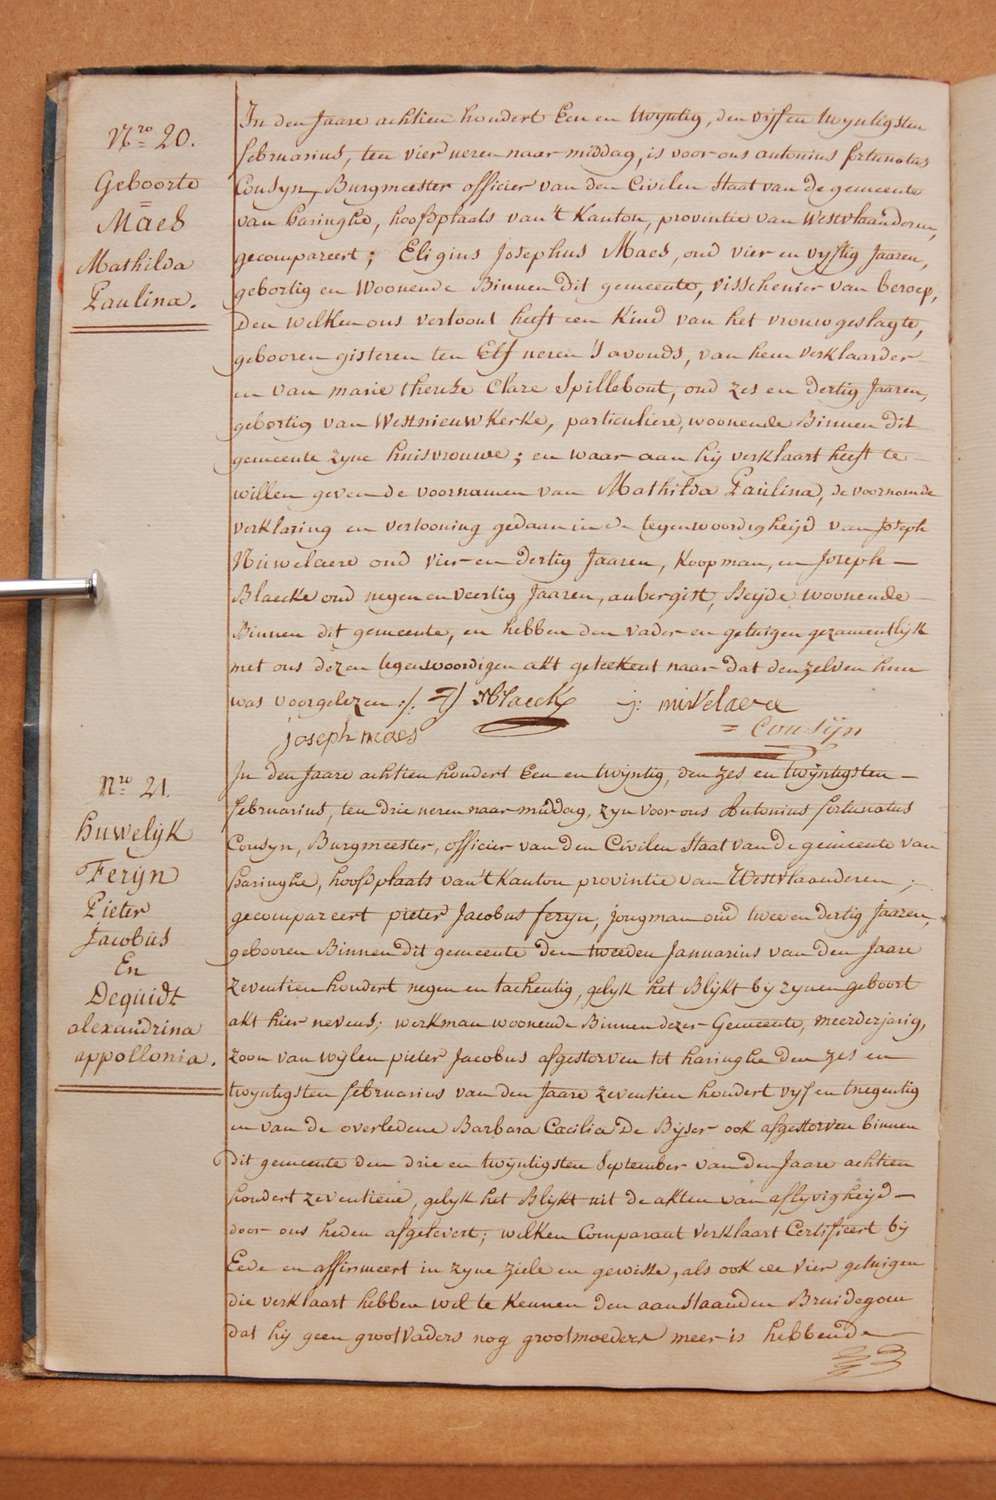 Nro 20.
Geboorte
Maes
Mathilda
Paulina.
In den Jaare achtien hondert Een en twyntig, den vijf en twyntigsten
februarius, ten vier ueren naer middag, is voor ons antonius fortunatus
Cousyn, Burgmeester officier van den Civilen Staat van de gemeente
van haringhe, hoofdplaats van 't Kanton, provintie van Westvlaanderen,
gecompareert; Eligius Josephus Maes, oud vier en vyftig Jaaren,
gebortig en Woonende Binnen dit gemeente, visschenier van beroep,
Den welken ons vertoont heeft een Kind van het vrouwgeslagte,
gebooren gisteren ten Elf ueren 's avonds, van hem verklaarder
en van marie therese Clare Spillebout, oud zes en dertig Jaaren,
gebortig van Westnieuwkerke, particuliere, woonende Binnen dit
gemeente zyne huisvrouwe; en waar aan hij verklaart heeft te
willen geven de voornamen van Mathilda Paulina, de voornoemde
verklaring en vertooning gedaan in de tegenwoordigheijd van Joseph
Nuwelaere oud vier en dertig Jaaren, Koopman, en Joseph
Blaecke oud negen en veertig Jaaren, aubergist, Beijde woonende
Binnen dit gemeente, en hebben den vader en getuigen gezamentlijk
met ons dezen tegenwoordigen akt geteekent naar dat denzelven hun
was voorgelezen ./. J Blaecke j: nuvelaere
joseph maes = Cousijn
Nro 21.
Huwelijk
Feryn
Pieter
Jacobus
En
Dequidt
alexandrina
appollonia.
In den Jaare achtien hondert Een en twyntig, den zes en twyntigsten
februarius, ten drie ueren naer middag, zyn voor ons Antonius fortunatus
Cousyn, Burgmeester, officier van den Civilen Staat van de gemeente van
haringhe, hoofdplaats van 't Kanton provintie van Westvlaanderen;
gecompareert pieter Jacobus feryn, jongman oud twee en dertig Jaaren,
gebooren Binnen dit gemeente den tweeden Januarius van den Jaare
zeventien hondert negen en tachentig, gelyk het Blijkt bij zynen geboort
akt hier nevens; werkman woonende Binnen dezer Gemeente, meerderjarig,
zoon van wylen pieter Jacobus afgestorven tot haringhe den zes en
twyntigsten februarius van den Jaare zeventien hondert vyf en tnegentig
en van de overledene Barbara Cæcilia De Byser ook afgestorven binnen
dit gemeente den drie en twyntigsten September van den Jaare achtien
hondert zeventiene, gelyk het Blijkt uit de akten van aflyvigheijd
door ons heden afgelevert; wilken Comparant verklaart Certifieert bij
Eede en affirmeert in zyne ziele en gewisse, als ook de vier getuigen
die verklaart hebben wel te Kennen den aanstaanden Bruidegom
dat hij geen grootvaders nog grootmoeders meer is hebbende